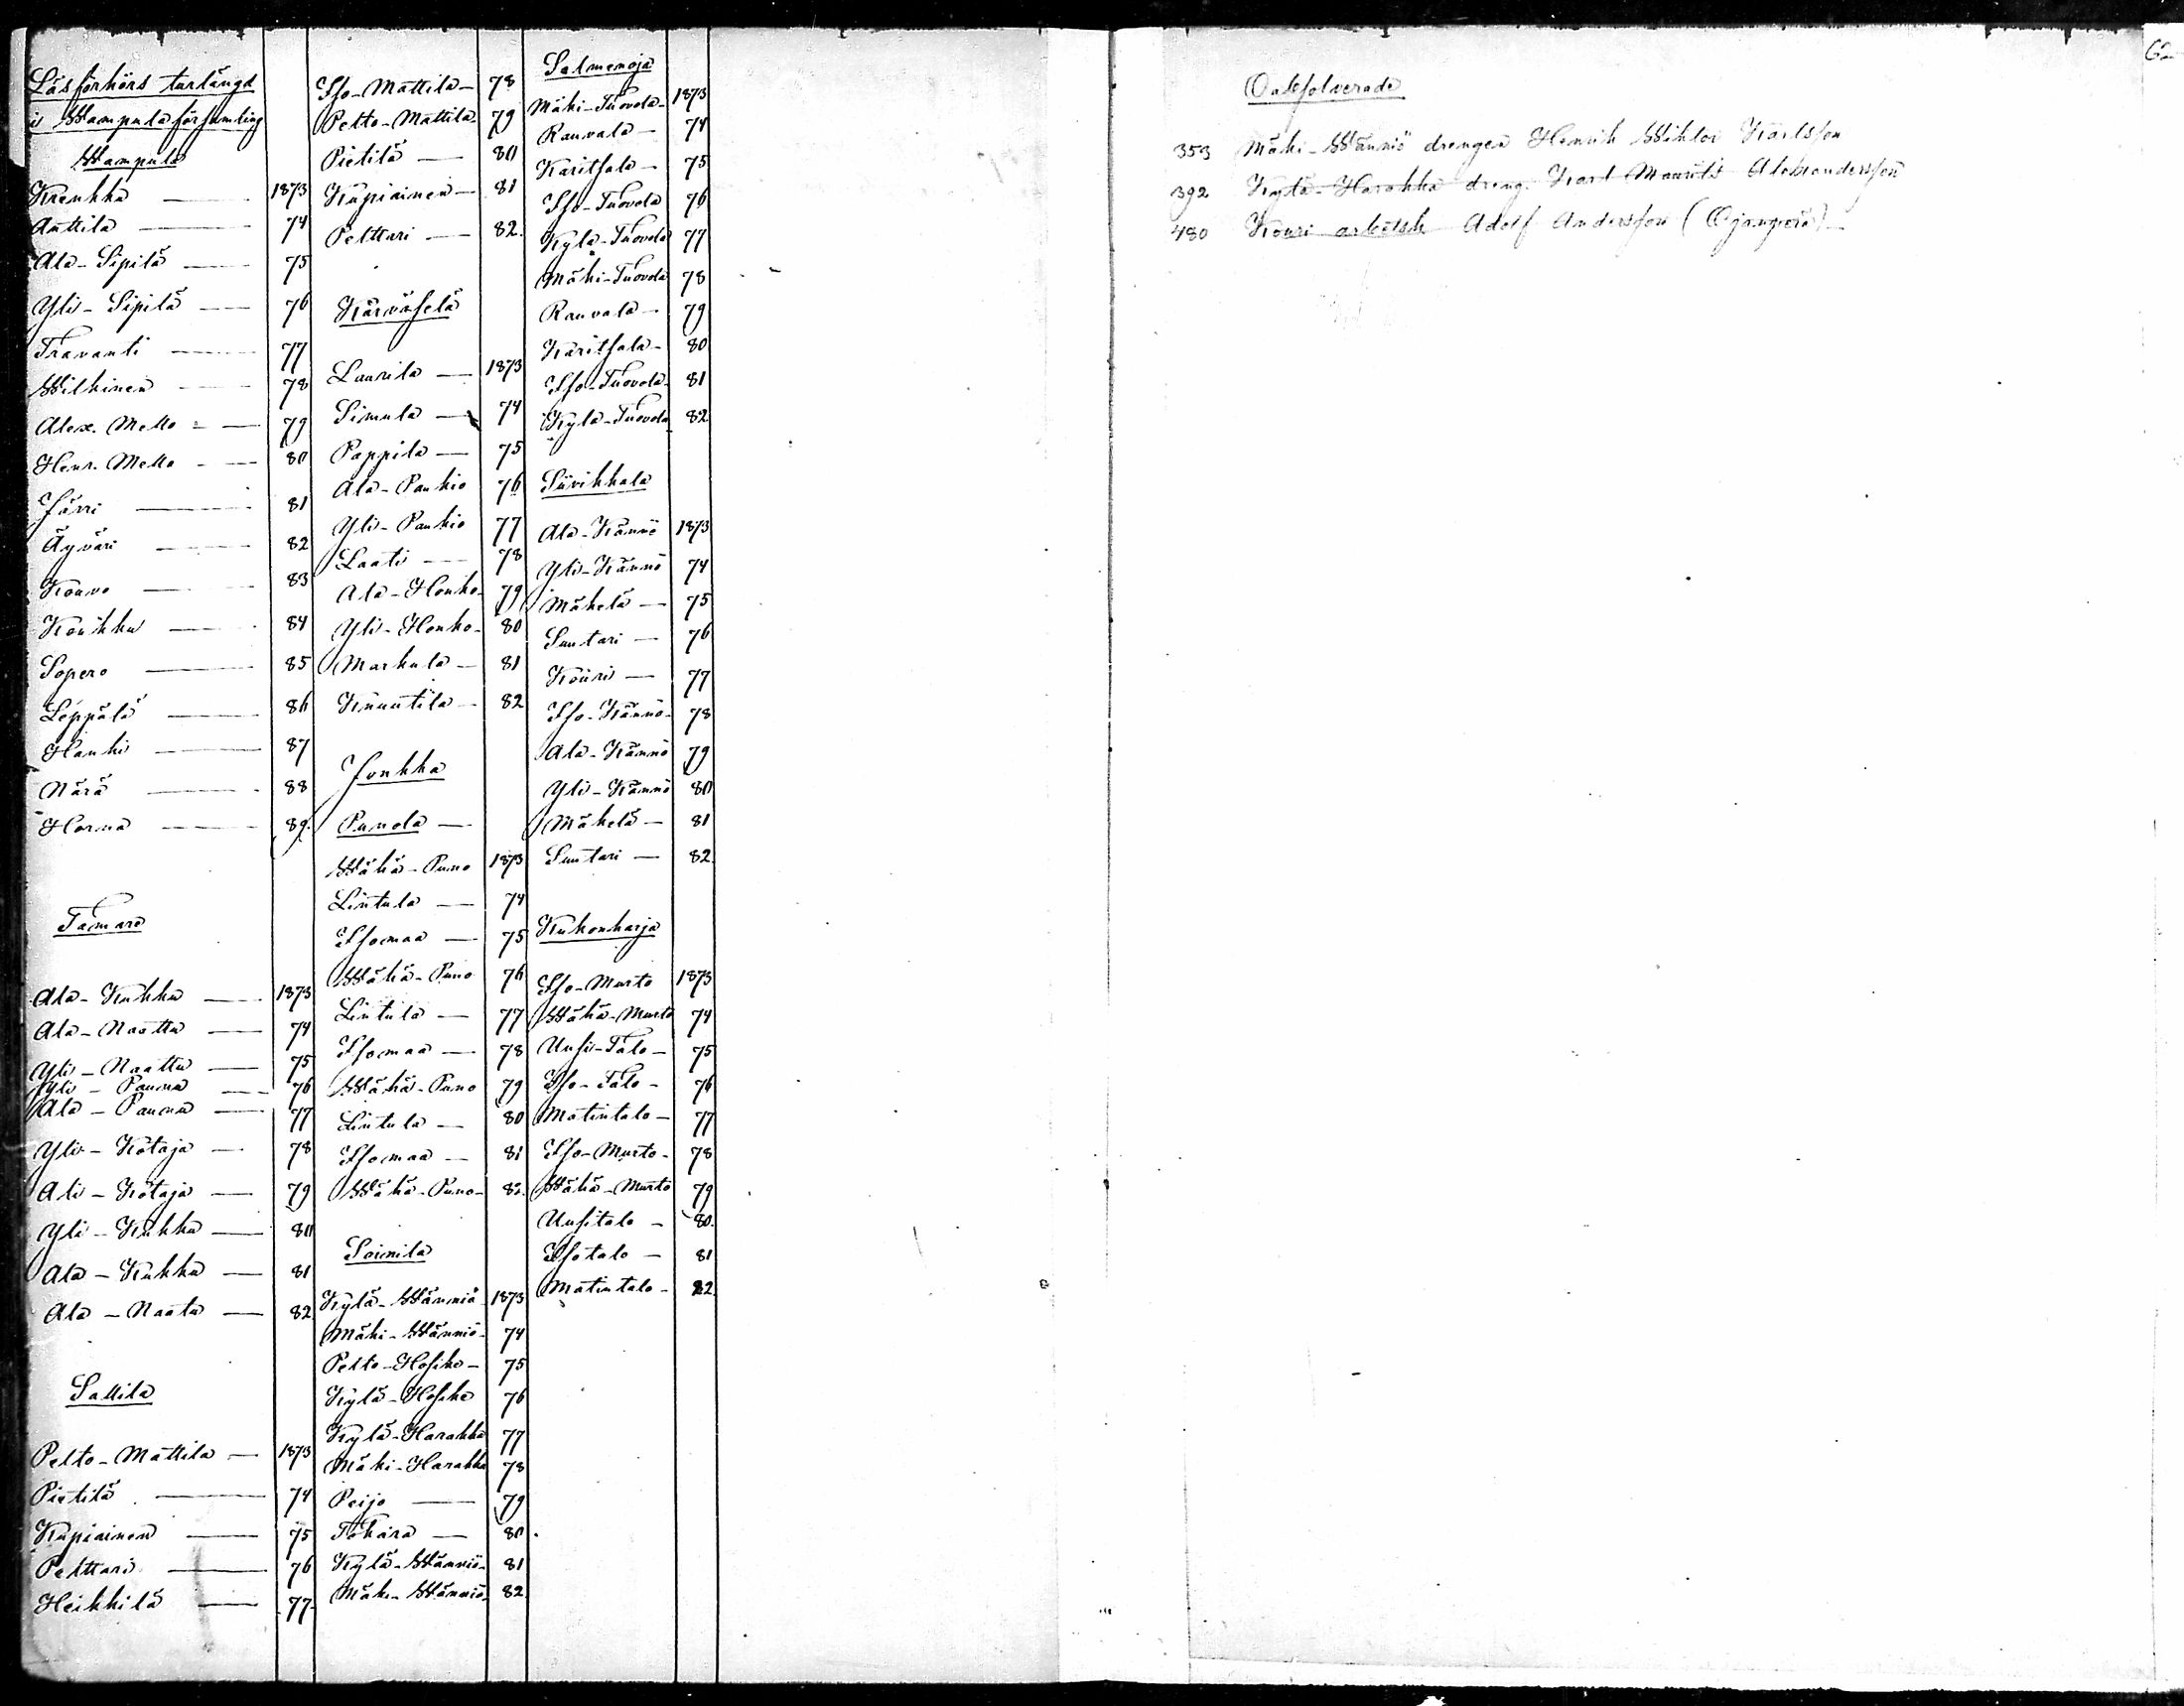 Läsförhörs turlängd
i Wampula församling
Wampula
Krenkka — 1873
Anttila — 74
Ala-Sipilä — 75
Yli-Sipilä — 76
Travanti — 77
Wilkinen — 78
Alex. Mello — 79
Henr. Mello — 80
Järri — 81
Äyväri — 82
Kouvo — 83
Koukku — 84
Sopero — 85
Leppälä — 86
Hauki — 87
Närä — 88
Horna — 89.
Tamare
Ala-Kukku — 1873
Ala-Naattu — 74
Yli-Naattu — 75
Yli-Paunu — 76
Ala-Paunu — 77
Yli-Kataja — 78
Ali-Kataja — 79
Yli-Kukku — 80
Ala-Kukku — 81
Ala-Naatu — 82
Sallila
Pelto-Mattila — 1873
Pietilä — 74
Kupiainen — 75
Pelttari — 76
Heikkilä — 77
Iso-Mattila — 78
Pelto-Mattila — 79
Pietilä — 80
Kupiainen — 81
Pelttari — 82.
Kärväselä
Laurila — 1873
Simula — 74
Pappila — 75
Ala-Paukio 76
Yli-Paukio 77
Laati — 78
Ala-Honko — 79
Yli-Honko — 80
Markula — 81
Knuutila — 82
Jonkka
Punola —
Wähä-Puno 1873
Lintula — 74
Isomaa — 75
Wähä-Puno 76
Lintula — 77
Isomaa — 78
Wähä-Puno 79
Lintula — 80
Isomaa — 81
Wähä-Puno — 82.
Soinila
Kylä-Wänniä 1873
Mäki-Wänniö — 74
Pelto-Hosiko — 75
Kylä-Hosiko 76
Kylä-Harakka 77
Mäki-Harakka 78
Peijo — 79
Takara — 80.
Kylä-Wänniö — 81
Mäki-Wänniö — 82.
Salmenoja
Mäki-Tuovola — 1873
Rauvala — 74
Karitsala — 75
Iso-Tuovola 76
Kylä-Tuovola 77
Mäki-Tuovola 78
Rauvala — 79
Karitsala — 80
Iso-Tuovola — 81
Kylä-Tuovola 82
Siivikkala
Ala-Kännö 1873
Yli-Kännö 74
Mäkelä — 75
Suutari — 76
Kouri — 77
Iso-Kännö — 78
Ala-Kännö 79
Yli-Kännö 80
Mäkelä — 81
Suutari — 82.
Kukonharja
Iso-Murto 1873
Wähä-Murto 74
Uusi-Talo — 75
Iso-Talo — 76
Matintalo — 77
Iso-Murto — 78
Wähä-Murto 79
Uusitalo — 80.
Isotalo — 81
Matintalo — 82.
62
Oabsolverade
353 Mäki-Wänniö drengen Henrik Wiktor Karlsson
392 Kylä-Harakka dreng. Karl Maurits Aleksandersson
480 Kouri Adolf Andersson